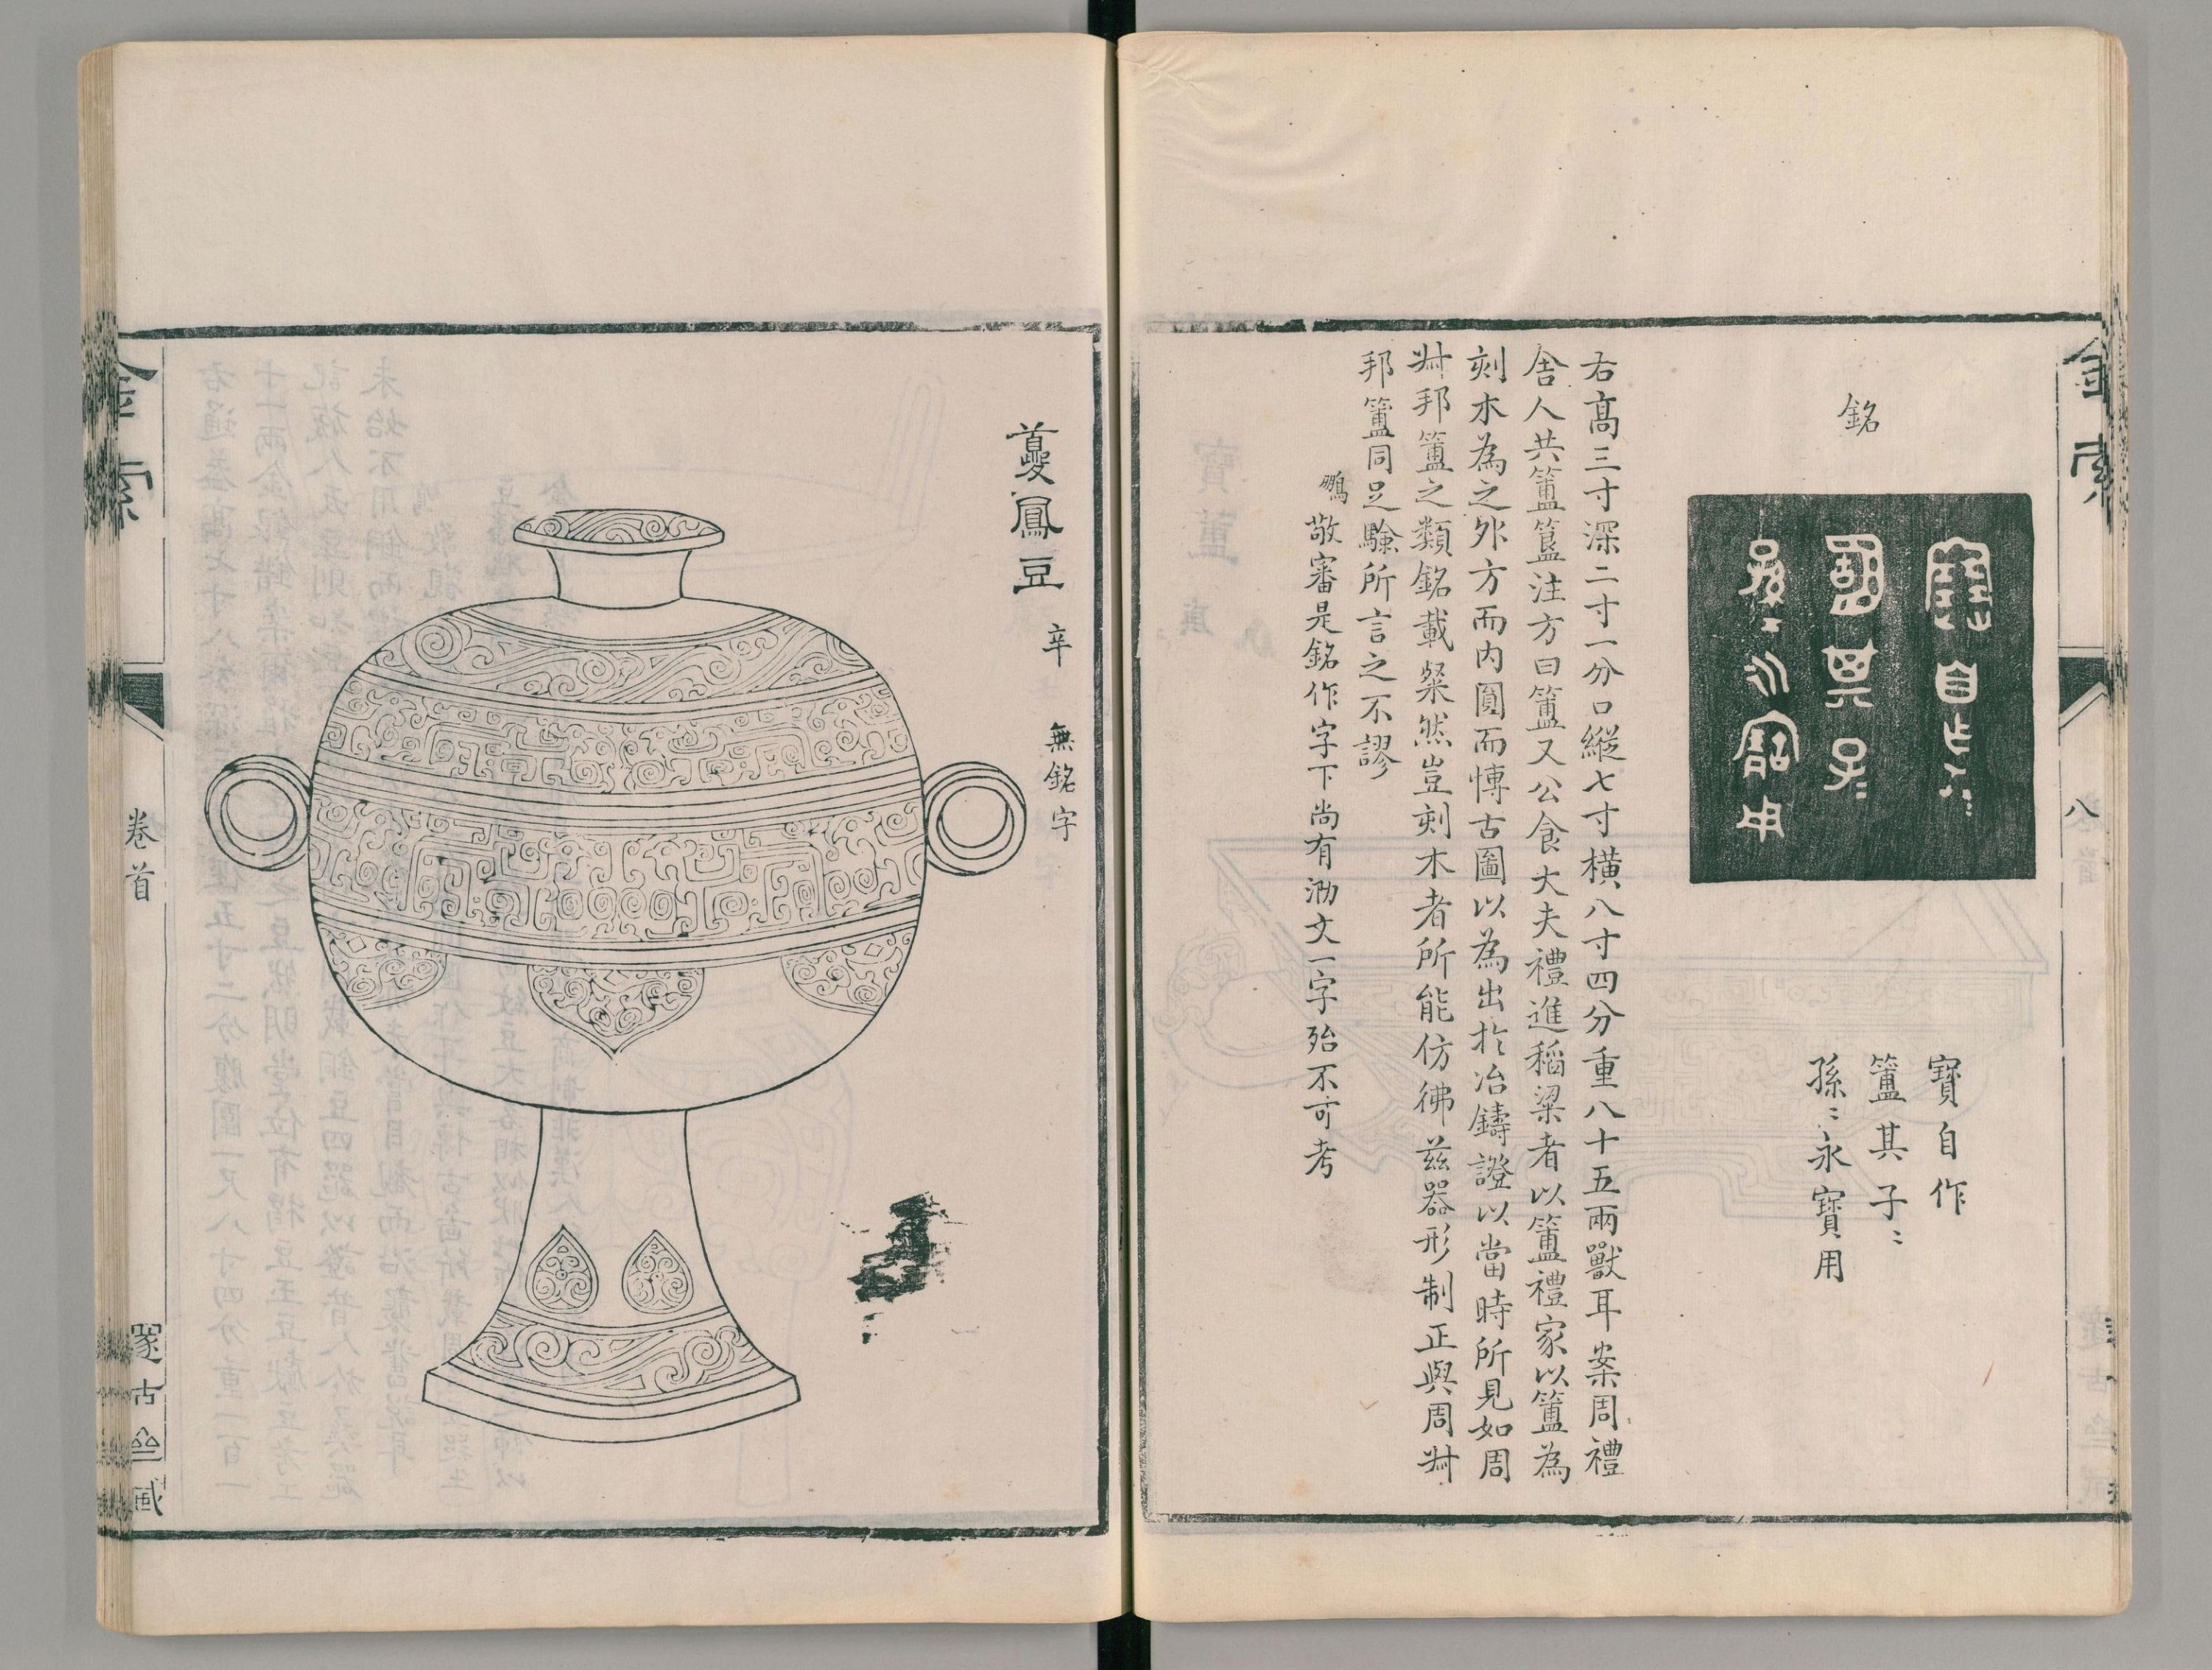 金索
八
銘
寶自作
簠其子〻
孫〻永寶用
右高三寸深二寸一分口縱七寸橫八寸四分重八十五兩獸耳案周禮
舍人共簠簋注方曰簠又公食大夫禮進稻粱者以簠禮家以簠為
刻木為之外方而内圓而愽古圖以為出扵冶鑄證以當時所見如周
邦簠之類銘載粲然豈刻木者所能仿彿兹器形制正與周
邦簠同足驗所言之不謬
鵬敬審是銘作字下尚有泐文一字殆不可考
夔鳳豆 辛 無銘字
金索
卷首
邃古齋藏